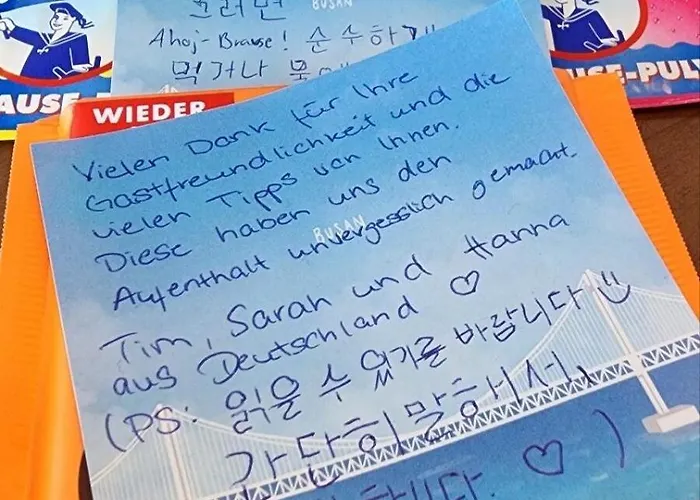 그러면
BUSAN
Ahoj-Brause! 순수하게
먹거나 물에
AUSE-
SE-PULV
WIEDER
Vielen Dank für Ihre
Gastfreundlichkeit und die
vielen Tipps von Ihnen.
Diese haben uns den
Aufenthalt unvergesslich gemacht.
BUSAN
Tim, Sarah und Hanna
aus Deutschland ♡
(PS: 읽을 수 있기를 바랍니다 :)
간단히 말해서,
합니다. ♡ )